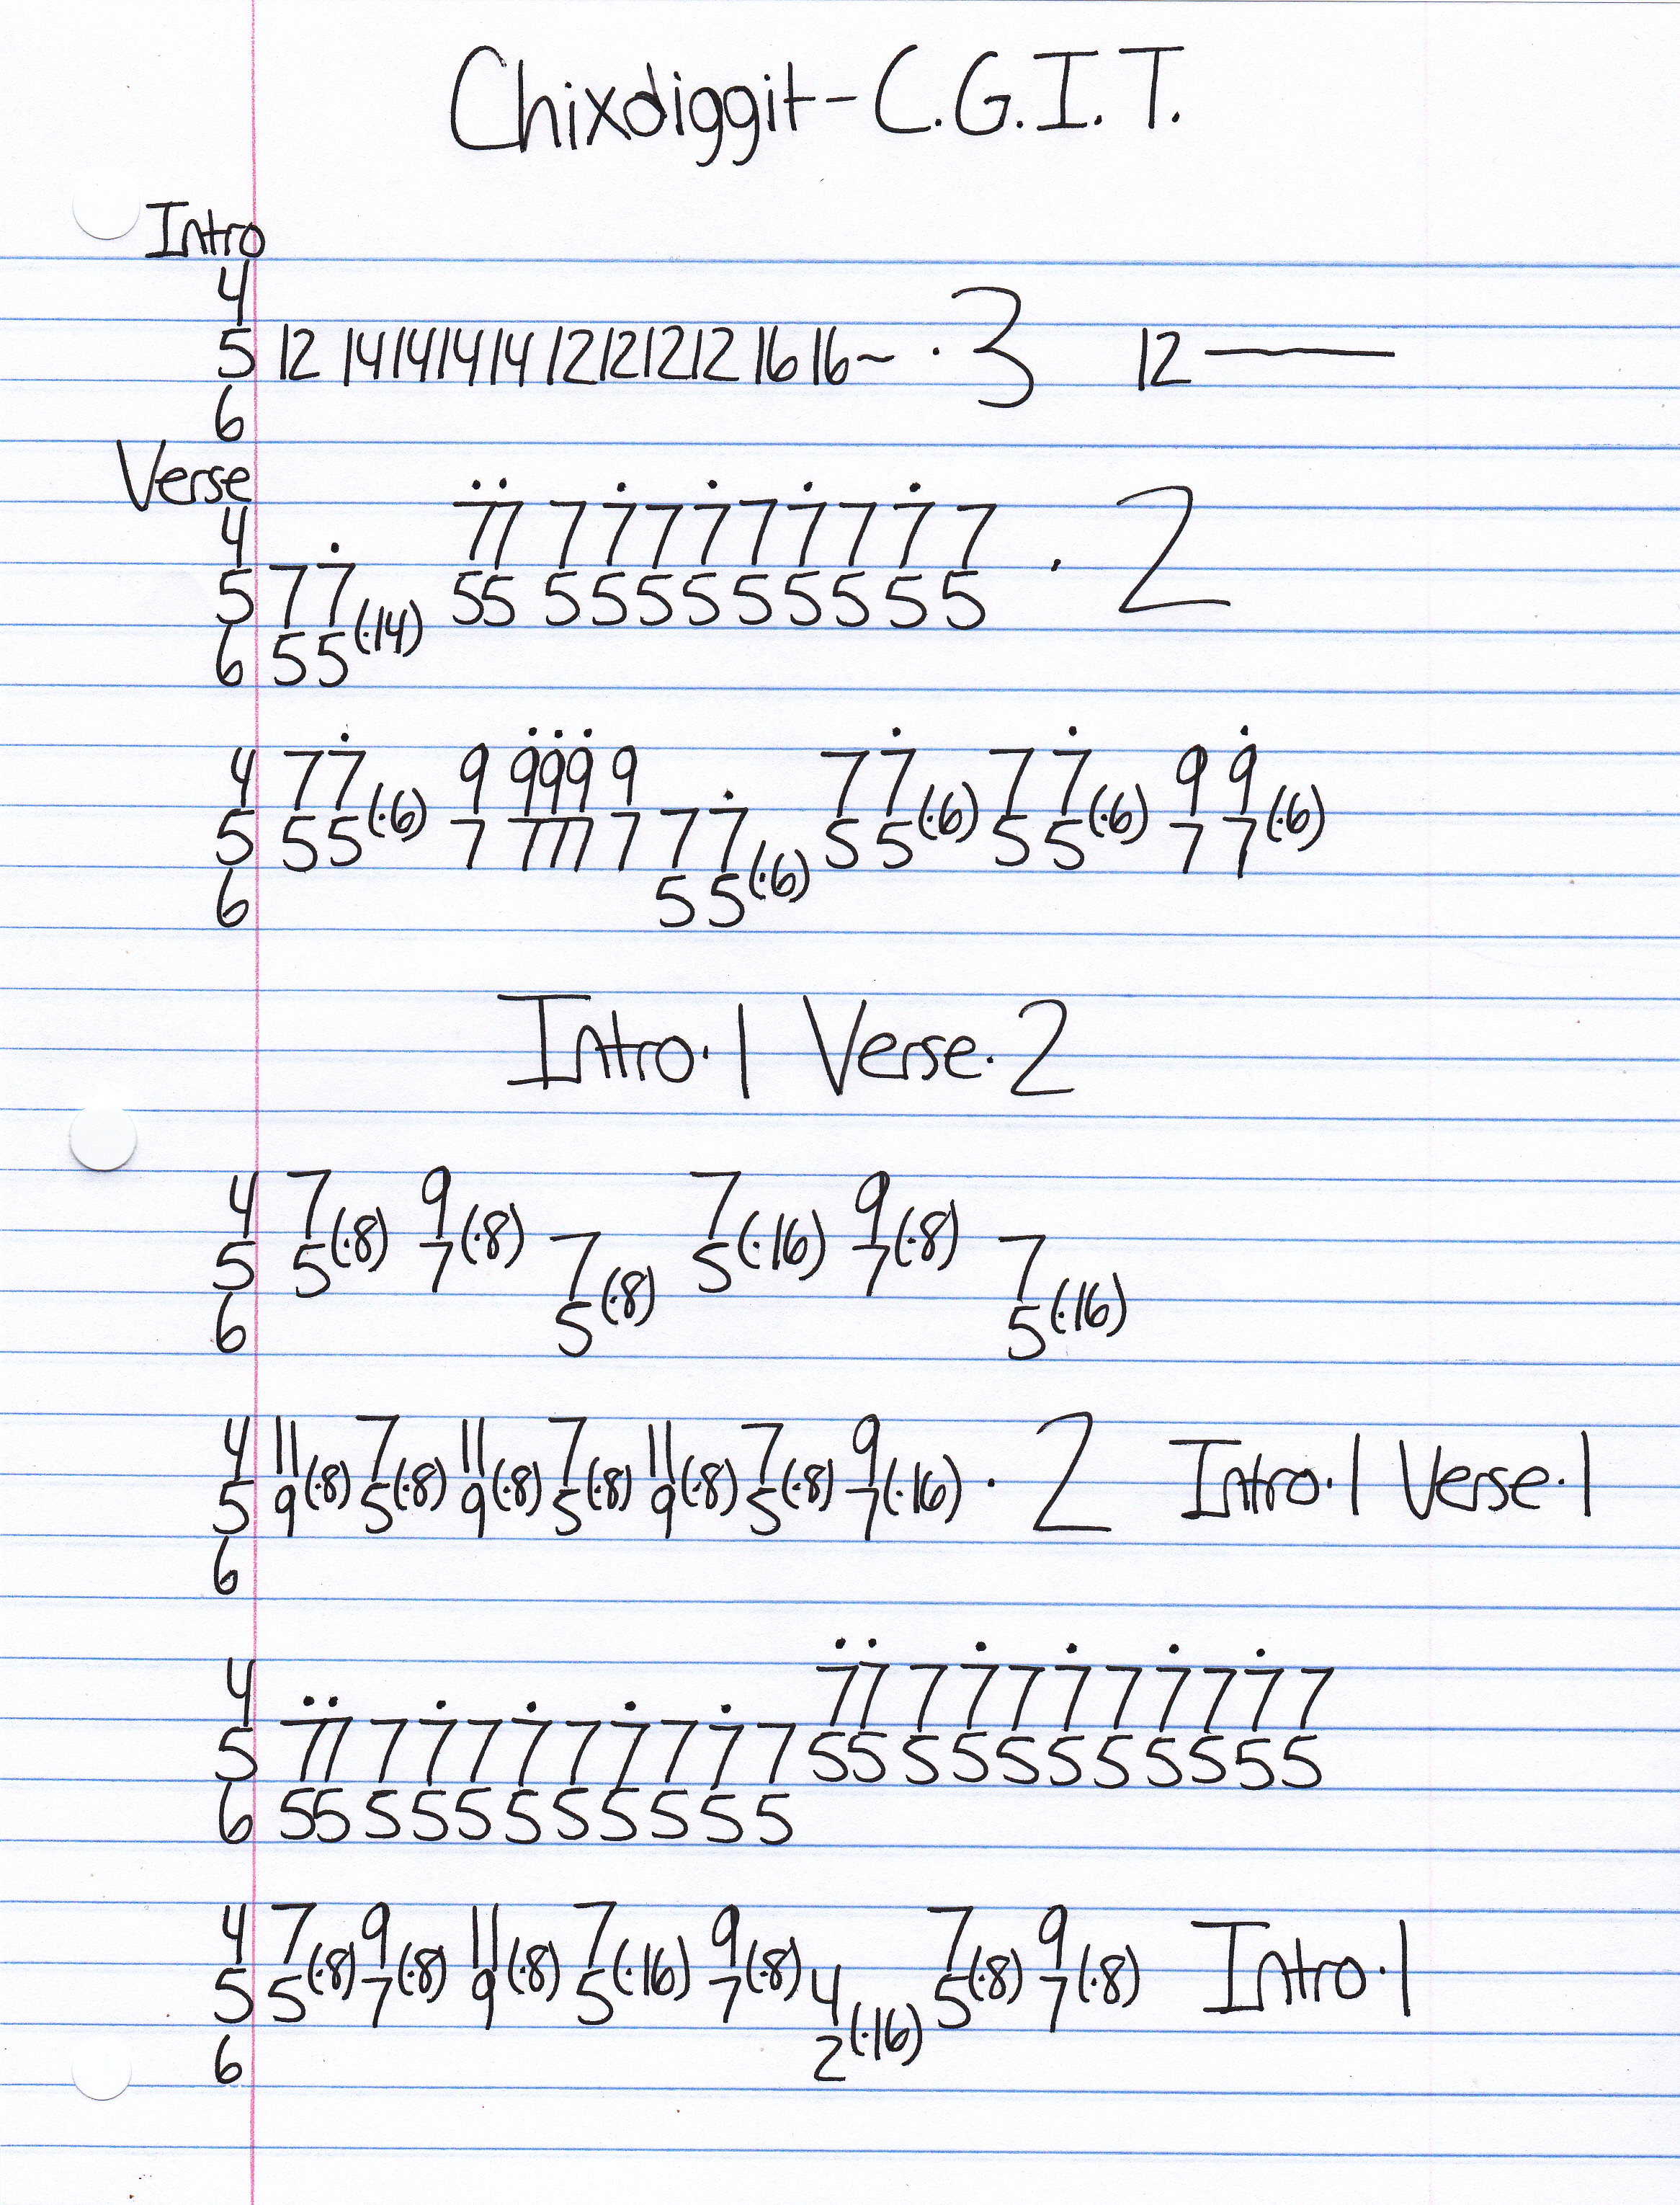 Chixdiggit - C.G.I.T.
Intro
4
5 12 14 14 14 14 12 12 12 12 16 16~ · 3 12 ——
6
Verse
4 7̇7̇ 7 7̇ 7 7̇ 7 7̇ 7 7̇ 7
5 7 7̇ 55 5 5 5 5 5 5 5 5 5 · 2
6 5 5(·14)
4 7 7̇ 9 9̇9̇9̇ 9 7 7̇ 7 7̇ 9 9̇
5 5 5(·6) 7 777 7 7 7̇ 5 5(·6) 5 5(·6) 7 7(·6)
6 5 5(·6)
Intro·1 Verse·2
4 7 9 7 9
5 5(·8) 7(·8) 7 5(·16) 7(·8) 7
6 5(·8) 5(·16)
4 11 7 11 7 11 7 9
5 9(·8) 5(·8) 9(·8) 5(·8) 9(·8) 5(·8) 7(·16) · 2 Intro·1 Verse·1
6
4 7̇7̇ 7 7̇ 7 7̇ 7 7̇ 7 7̇ 7
5 7̇7̇ 7 7̇ 7 7̇ 7 7̇ 7 7̇ 7 55 5 5 5 5 5 5 5 5 5
6 55 5 5 5 5 5 5 5 5 5
4 7 9 11 7 9 7 9
5 5(·8) 7(·8) 9(·8) 5(·16) 7(·8) 4 5(·8) 7(·8) Intro·1
6 2(·16)